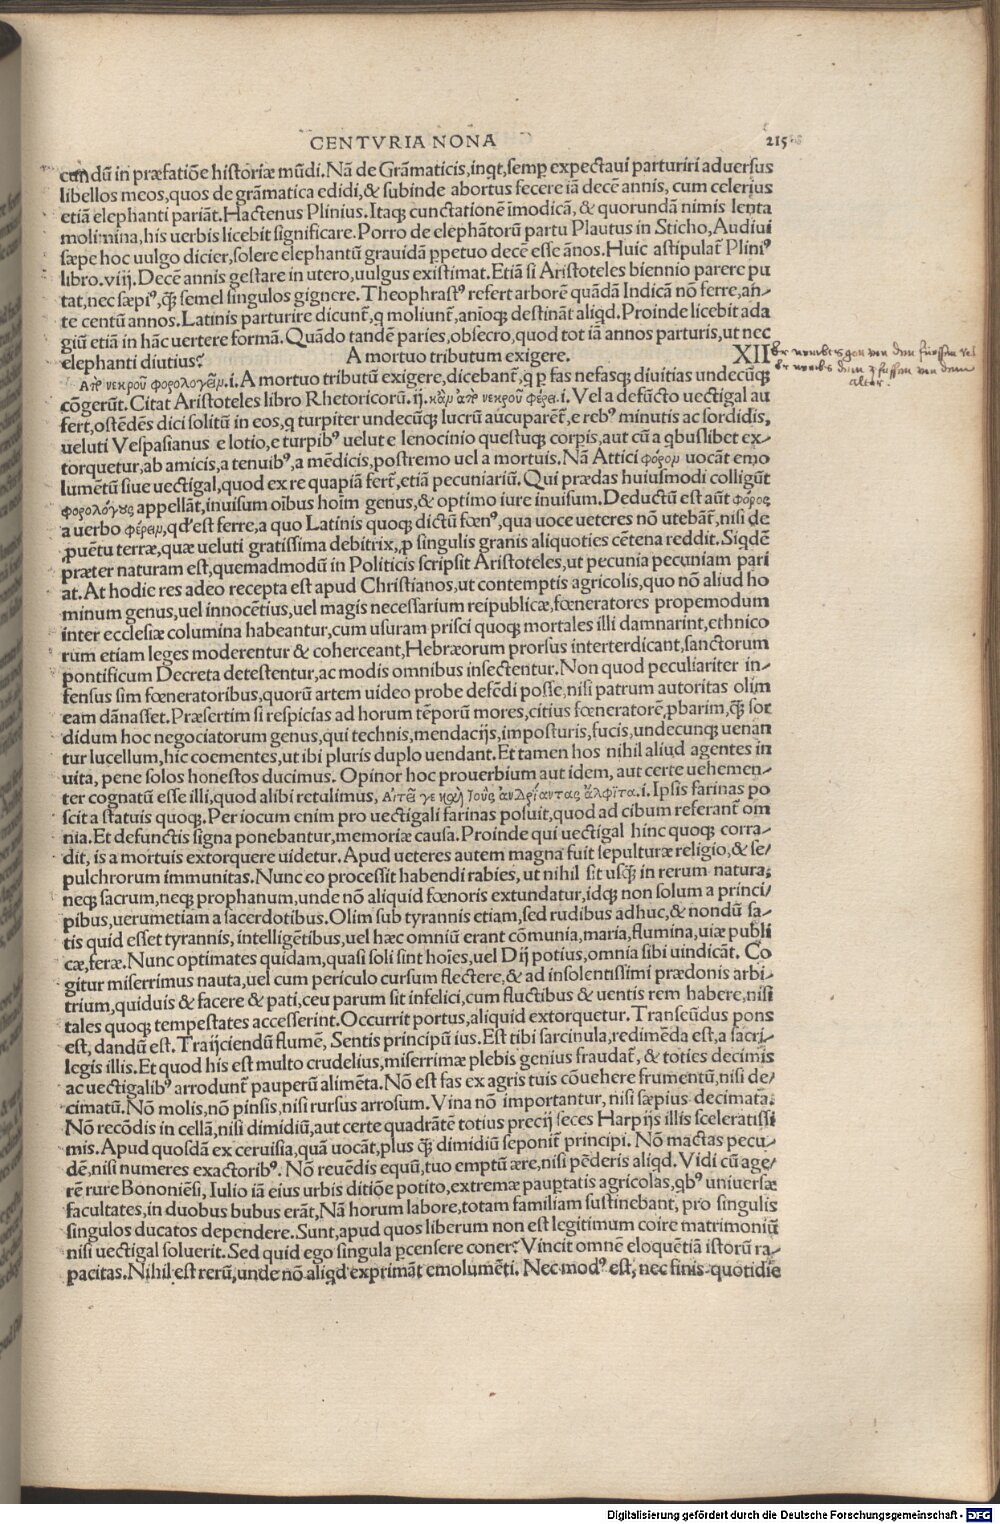 CENTVRIA NONA 215
cun dũ in præfatiõe historiæ mũdi. Nã de Grãmaticis, inqt, semp expectaui parturiri aduersus
libellos meos, quos de grãmatica edidi, & subinde abortus fecere iã decẽ annis, cum celerius
etiã elephanti pariãt. Hactenus Plinius. Itaqȝ cunctationẽ ĩmodicã, & quorundã nimis lenta
molimina, his uerbis licebit significare. Porro de elephãtorũ partu Plautus in Sticho, Audiui
sæpe hoc uulgo dicier, solere elephantũ grauidã ꝑpetuo decẽ esse ãnos. Huic astipulat̃ Pliniꝰ
libro. viij. Decẽ annis gestare in utero, uulgus existimat. Etiã si Aristoteles biennio parere pu
tat, nec sæpiꝰ, q̃ȝ semel singulos gignere. Theophrastꝰ refert arborẽ quãdã Indicã nõ ferre, an⸗
te centũ annos. Latinis parturire dicunt̃, q moliunt̃, anioqȝ destinãt aliqd. Proinde licebit ada
giũ etiã in hãc uertere formã. Quãdo tandẽ paries, obsecro, quod tot iã annos parturis, ut nec
elephanti diutius? A mortuo tributum exigere. XII
Ἀπὸ νεκροῦ φορολογεῖν. i. A mortuo tributũ exigere, dicebant̃, q ꝑ fas nefasqȝ diuitias undecũqȝ
cõgerũt. Citat Aristoteles libro Rhetoricorũ. ij. κᾂν ἀπὸ νεκροῦ φέρει. i. Vel a defũcto uectigal au
fert, ostẽdẽs dici solitũ in eos, q turpiter undecũqȝ lucrũ aucuparẽt̃, e rebꝰ minutis ac sordidis,
ueluti Vespasianus e lotio, e turpibꝰ uelut e lenocinio questuqȝ corꝑis, aut cũ a qbuslibet ex⸗
torquetur, ab amicis, a tenuibꝰ, a mẽdicis, postremo uel a mortuis. Nã Attici φόρον uocãt emo
lumẽtũ siue uectigal, quod ex re quapiã fert̃, etiã pecuniariũ. Qui prædas huiusmodi colligũt
φορολόγους appellãt, inuisum oĩbus hoĩm genus, & optimo iure inuisum. Deductũ est aũt φόρος
a uerbo φέρειν, qd' est ferre, a quo Latinis quoqȝ dictũ fœnꝰ, qua uoce ueteres nõ utebãt̃, nisi de
ꝓuẽtu terræ, quæ ueluti gratissima debitrix, ꝓ singulis granis aliquoties cẽtena reddit. Siqdẽ
præter naturam est, quemadmodũ in Politicis scripsit Aristoteles, ut pecunia pecuniam pari
at. At hodie res adeo recepta est apud Christianos, ut contemptis agricolis, quo nõ aliud ho
minum genus, uel innocẽtius, uel magis necessarium reipublicæ, fœneratores propemodum
inter ecclesiæ columina habeantur, cum usuram prisci quoqȝ mortales illi damnarint, ethnico
rum etiam leges moderentur & coherceant, Hebræorum prorsus interterdicant, sanctorum
pontificum Decreta detestentur, ac modis omnibus insectentur. Non quod peculiariter in⸗
fensus sim fœneratoribus, quorũ artem uideo probe defẽdi posse, nisi patrum autoritas olim
eam dãnasset. Præsertim si respicias ad horum tẽporũ mores, citius fœneratorẽ, ꝓbarim, q̃ȝ sor
didum hoc negociatorum genus, qui technis, mendacijs, imposturis, fucis, undecunqȝ uenan
tur lucellum, hic coementes, ut ibi pluris duplo uendant. Et tamen hos nihil aliud agentes in
uita, pene solos honestos ducimus. Opinor hoc prouerbium aut idem, aut certe uehemen⸗
ter cognatũ esse illi, quod alibi retulimus, Αἰτεῖ γε καὶ τοὺς ἀνδριάντας ἄλφιτα. i. Ipsis farinas po
scit a statuis quoqȝ. Per iocum enim pro uectigali farinas posuit, quod ad cibum referant̃ om
nia. Et defunctis signa ponebantur, memoriæ causa. Proinde qui uectigal hinc quoqȝ corra⸗
dit, is a mortuis extorquere uidetur. Apud ueteres autem magna fuit sepulturæ religio, & se⸗
pulchrorum immunitas. Nunc eo processit habendi rabies, ut nihil sit usq̃ȝ in rerum natura,
neqȝ sacrum, neqȝ prophanum, unde nõ aliquid fœnoris extundatur, idqȝ non solum a princi⸗
pibus, uerumetiam a sacerdotibus. Olim sub tyrannis etiam, sed rudibus adhuc, & nondũ sa⸗
tis quid esset tyrannis, intelligẽtibus, uel hæc omniũ erant cõmunia, maria, flumina, uiæ publi
cæ, feræ. Nunc optimates quidam, quasi soli sint hoĩes, uel Dij potius, omnia sibi uindicãt. Co
gitur miserrimus nauta, uel cum periculo cursum flectere, & ad insolentissimi prædonis arbi⸗
trium, quiduis & facere & pati, ceu parum sit infelici, cum fluctibus & uentis rem habere, nisi
tales quoqȝ tempestates accesserint. Occurrit portus, aliquid extorquetur. Transeũdus pons
est, dandũ est. Traijciendũ flumẽ, Sentis principũ ius. Est tibi sarcinula, redimẽda est, a sacri⸗
legis illis. Et quod his est multo crudelius, miserrimæ plebis genius fraudat̃, & toties decimis
ac uectigalibꝰ arrodunt̃ pauperũ alimẽta. Nõ est fas ex agris tuis cõuehere frumentũ, nisi de⸗
cimatũ. Nõ molis, nõ pinsis, nisi rursus arrosum. Vina nõ importantur, nisi sæpius decimata.
Nõ recõdis in cellã, nisi dimidiũ, aut certe quadrãtẽ totius precij seces Harpijs illis sceleratissi
mis. Apud quosdã ex ceruisia, quã uocãt, plus q̃ȝ dimidiũ seponit̃ principi. Nõ mactas pecu⸗
dẽ, nisi numeres exactoribꝰ. Nõ reuẽdis equũ, tuo emptũ ære, nisi pẽderis aliqd. Vidi cũ age⸗
rẽ rure Bononiẽsi, Iulio iã eius urbis ditiõe potito, extremæ pauꝑtatis agricolas, qbꝰ uniuersæ
facultates, in duobus bubus erãt, Nã horum labore, totam familiam sustinebant, pro singulis
singulos ducatos dependere. Sunt, apud quos liberum non est legitimum coire matrimoniũ
nisi uectigal soluerit. Sed quid ego singula ꝑcensere coner? Vincit omnẽ eloquẽtiã istorũ ra⸗
pacitas. Nihil est rerũ, unde nõ aliqd exprimãt emolumẽti. Nec modꝰ est, nec finis quotidie
Digitalisierung gefördert durch die Deutsche Forschungsgemeinschaft - DFG